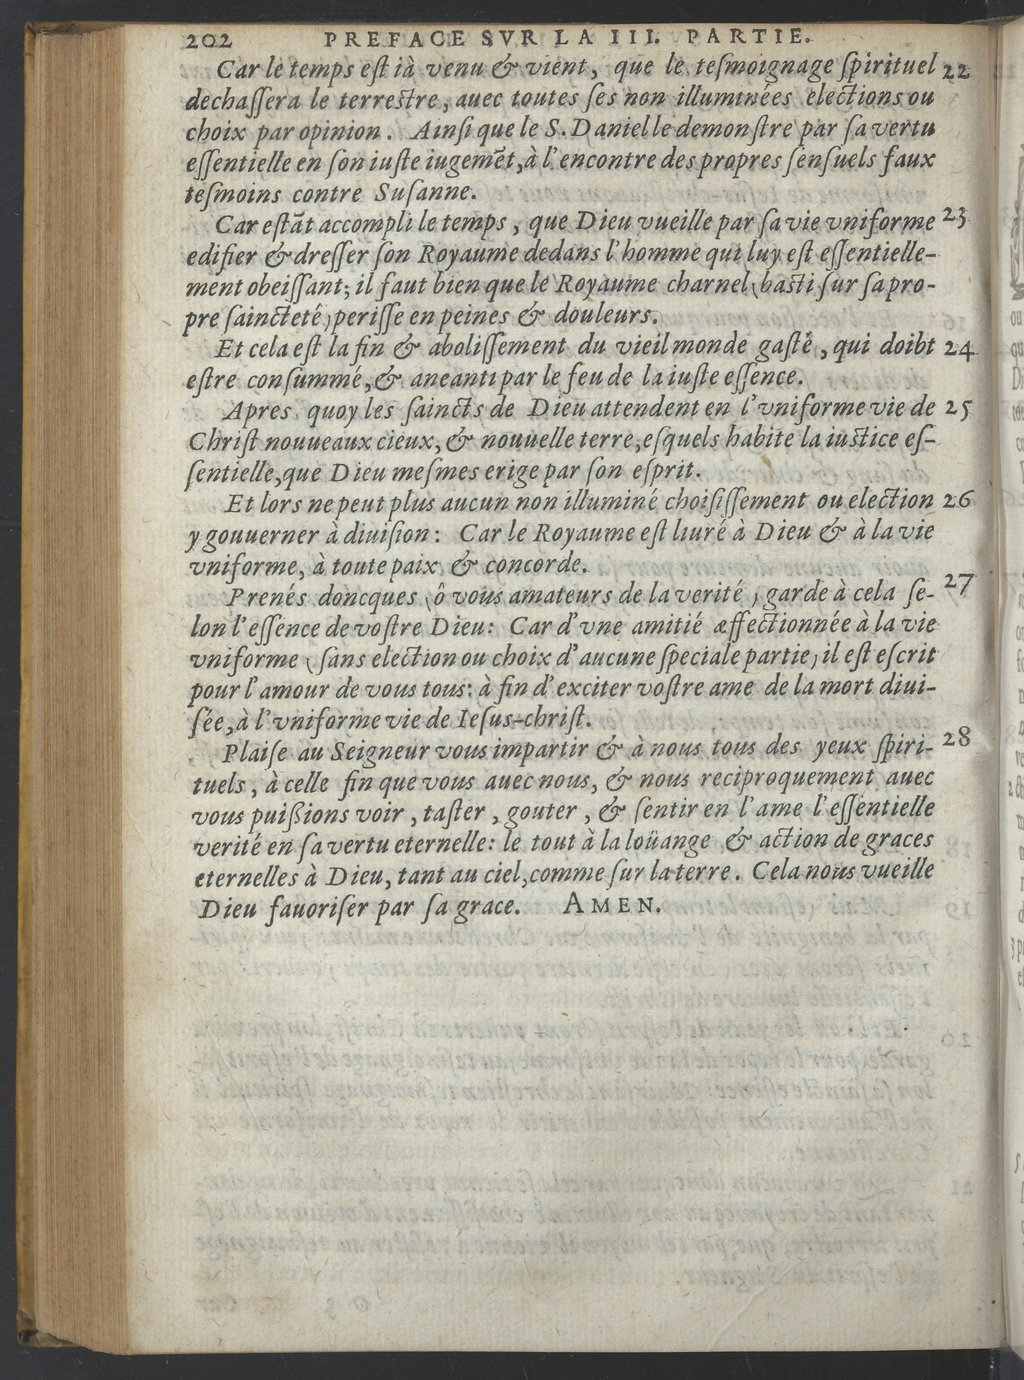 202 PREFACE SVR LA III. PARTIE.
Car le temps eſt ià venu & vient, que le teſmoignage ſpirituel 22
dechaſſera le terreſtre, auec toutes ſes non illuminées elections ou
choix par opinion. Ainſi que le S. Daniel le demonſtre par ſa vertu
eſſentielle en ſon iuſte iugemēt, à l'encontre des propres ſenſuels faux
teſmoins contre Suſanne.
Car eſtāt accompli le temps, que Dieu vueille par ſa vie vniforme 23
edifier & dreſſer ſon Royaume dedans l'homme qui luy eſt eſſentielle-
ment obeiſſant; il faut bien que le Royaume charnel (baſti ſur ſa pro-
pre ſaincteté) periſſe en peines & douleurs.
Et cela eſt la fin & aboliſſement du vieil monde gaſté, qui doibt 24
eſtre conſummé, & aneanti par le feu de la iuſte eſſence.
Apres quoy les ſaincts de Dieu attendent en l'vniforme vie de 25
Chriſt nouueaux cieux, & nouuelle terre, eſquels habite la iuſtice eſ-
ſentielle, que Dieu meſmes erige par ſon eſprit.
Et lors ne peut plus aucun non illuminé choiſiſſement ou election 26
y gouuerner à diuiſion: Car le Royaume eſt liuré à Dieu & à la vie
vniforme, à toute paix & concorde.
Prenés doncques (ô vous amateurs de la verité) garde à cela ſe- 27
lon l'eſſence de voſtre Dieu: Car d'vne amitié æffectionnée à la vie
vniforme (ſans election ou choix d'aucune ſpeciale partie) il eſt eſcrit
pour l'amour de vous tous: à fin d'exciter voſtre ame de la mort diui-
ſée, à l'vniforme vie de Ieſus-chriſt.
Plaiſe au Seigneur vous impartir & à nous tous des yeux ſpiri- 28
tuels, à celle fin que vous auec nous, & nous reciproquement auec
vous puißions voir, taſter, gouter, & ſentir en l'ame l'eſſentielle
verité en ſa vertu eternelle: le tout à la loüange & action de graces
eternelles à Dieu, tant au ciel, comme ſur la terre. Cela nous vueille
Dieu fauoriſer par ſa grace. AMEN.